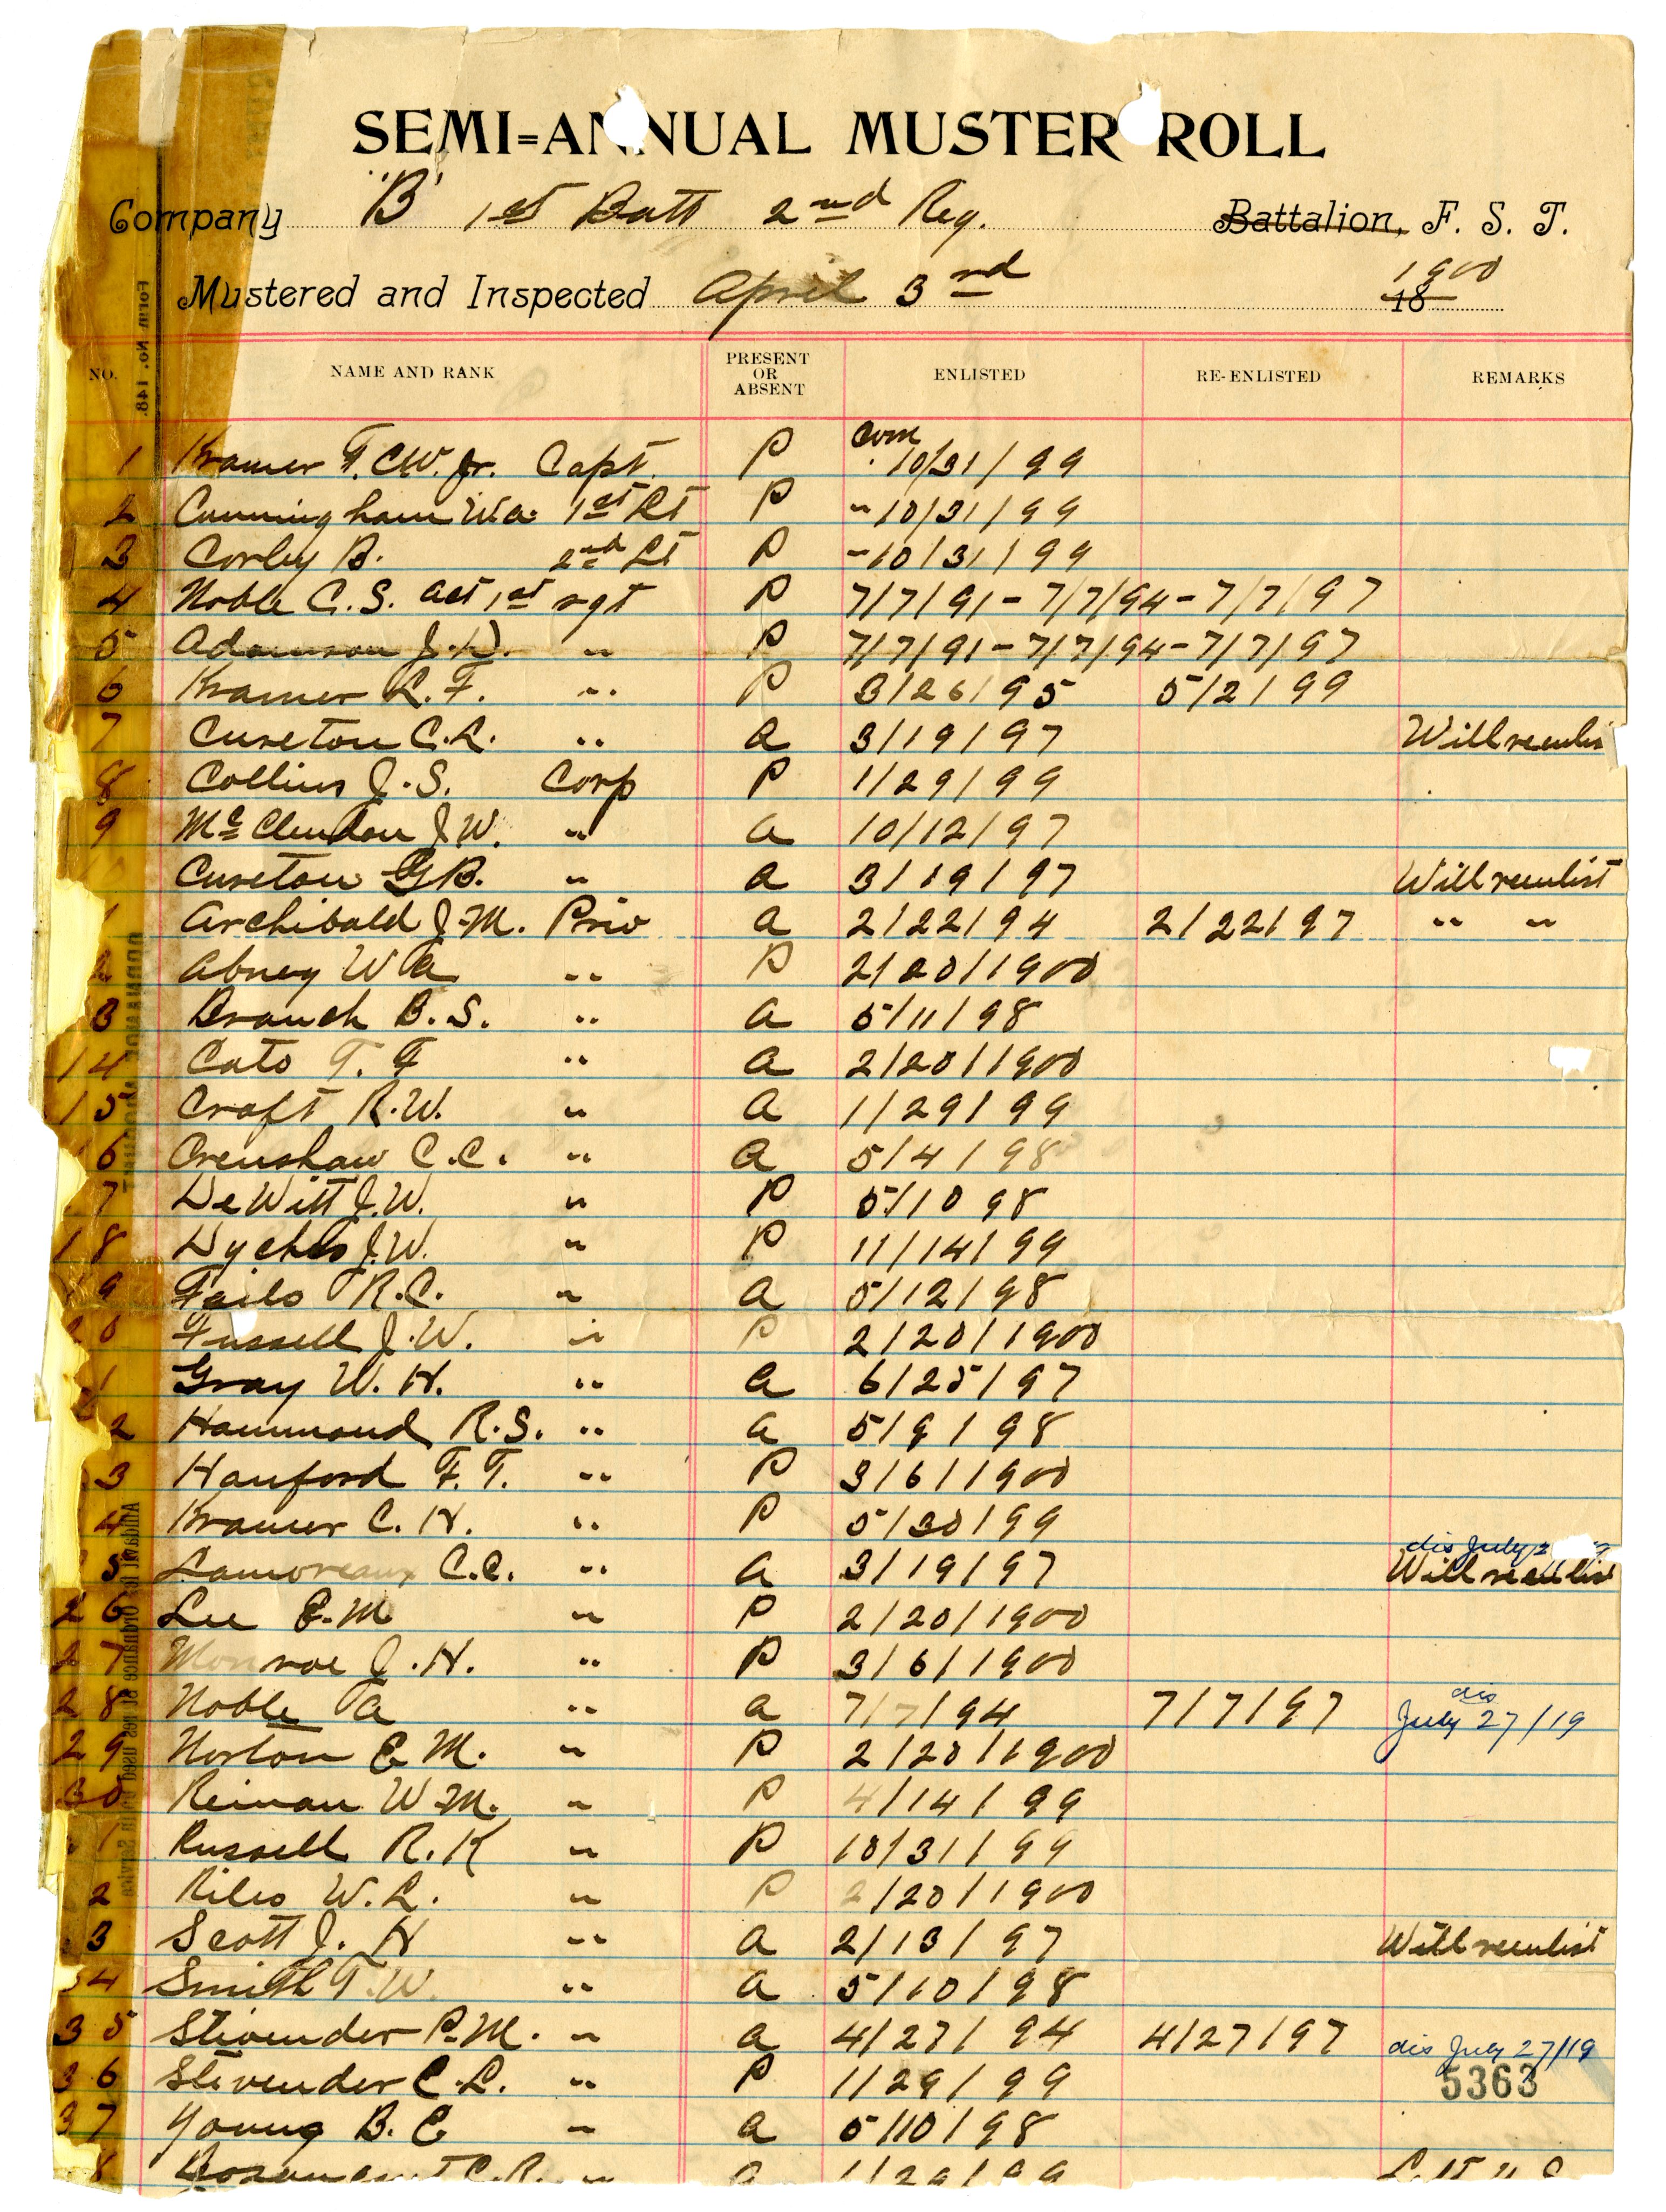 SEMI=ANNUAL MUSTER ROLL
Company "B" 1st Batt 2nd Reg. Battalion, F. S. T.
Mustered and Inspected April 3rd 18 1900
NO. NAME AND RANK PRESENT OR ABSENT ENLISTED RE-ENLISTED REMARKS
1 Kramer F. C. W. Jr. Capt. P Com 10/31/99
2 Cunningham W. a. 1st Lt P " 10/31/99
3 Corley B. 2nd Lt P " 10/31/99
4 Noble C. S. act 1st sgt P 7/7/91 - 7/7/94 - 7/7/97
5 Adamson J. D. " P 7/7/91 - 7/7/94 - 7/7/97
6 Kramer L. F. " P 3/26/95 5/2/99
7 Cureton C. L. " a 3/19/97 Will reenlis
8 Collins J. S. Corp P 1/29/99
9 Mc Clendon J W. " a 10/12/97
Cureton G B. " a 3/19/97 Will reenlist
1 Archibald J. M. Priv a 2/22/94 2/22/97 " "
2 Abney W a " P 2/20/1900
3 Branch B. S. " a 5/11/98
14 Cato T. F " a 2/20/1900
15 Craft R. W. " a 1/29/99
6 Crenshaw C. C. " a 5/4/98
7 DeWitt J. W. " P 5/10 98
18 Dyches J. W. " P 11/14/99
9 Fails R. C. " a 5/12/98
20 Fussell J. W. " P 2/20/1900
1 Gray W. H. " a 6/25/97
2 Hammond R. S. " a 5/9/98
3 Hanford F. T. " P 3/6/1900
4 Kramer C. H. " P 5/30/99
dis July 2
5 Lamoreaux C. C. " a 3/19/97 Will reenlist
26 Lee E. M " P 2/20/1900
27 Monroe J. H. " P 3/6/1900
28 Noble a " a 7/7/94 7/7/97 dis July 27/19
29 Norton E M. " P 2/20/1900
30 Reinau W. M. " P 4/14/99
1 Russell R. K " P 10/31/99
2 Riles W. L. " P 2/20/1900
3 Scott J. H " a 2/13/97 Will reenlist
34 Smith T. W. " a 5/10/98
35 Stivender P. M. " a 4/27/94 4/27/97 dis July 27/19
36 Stivender C. L. " P 1/29/99
5363
37 Young B. E " a 5/10/98
8 C. R. " a 1/29/99